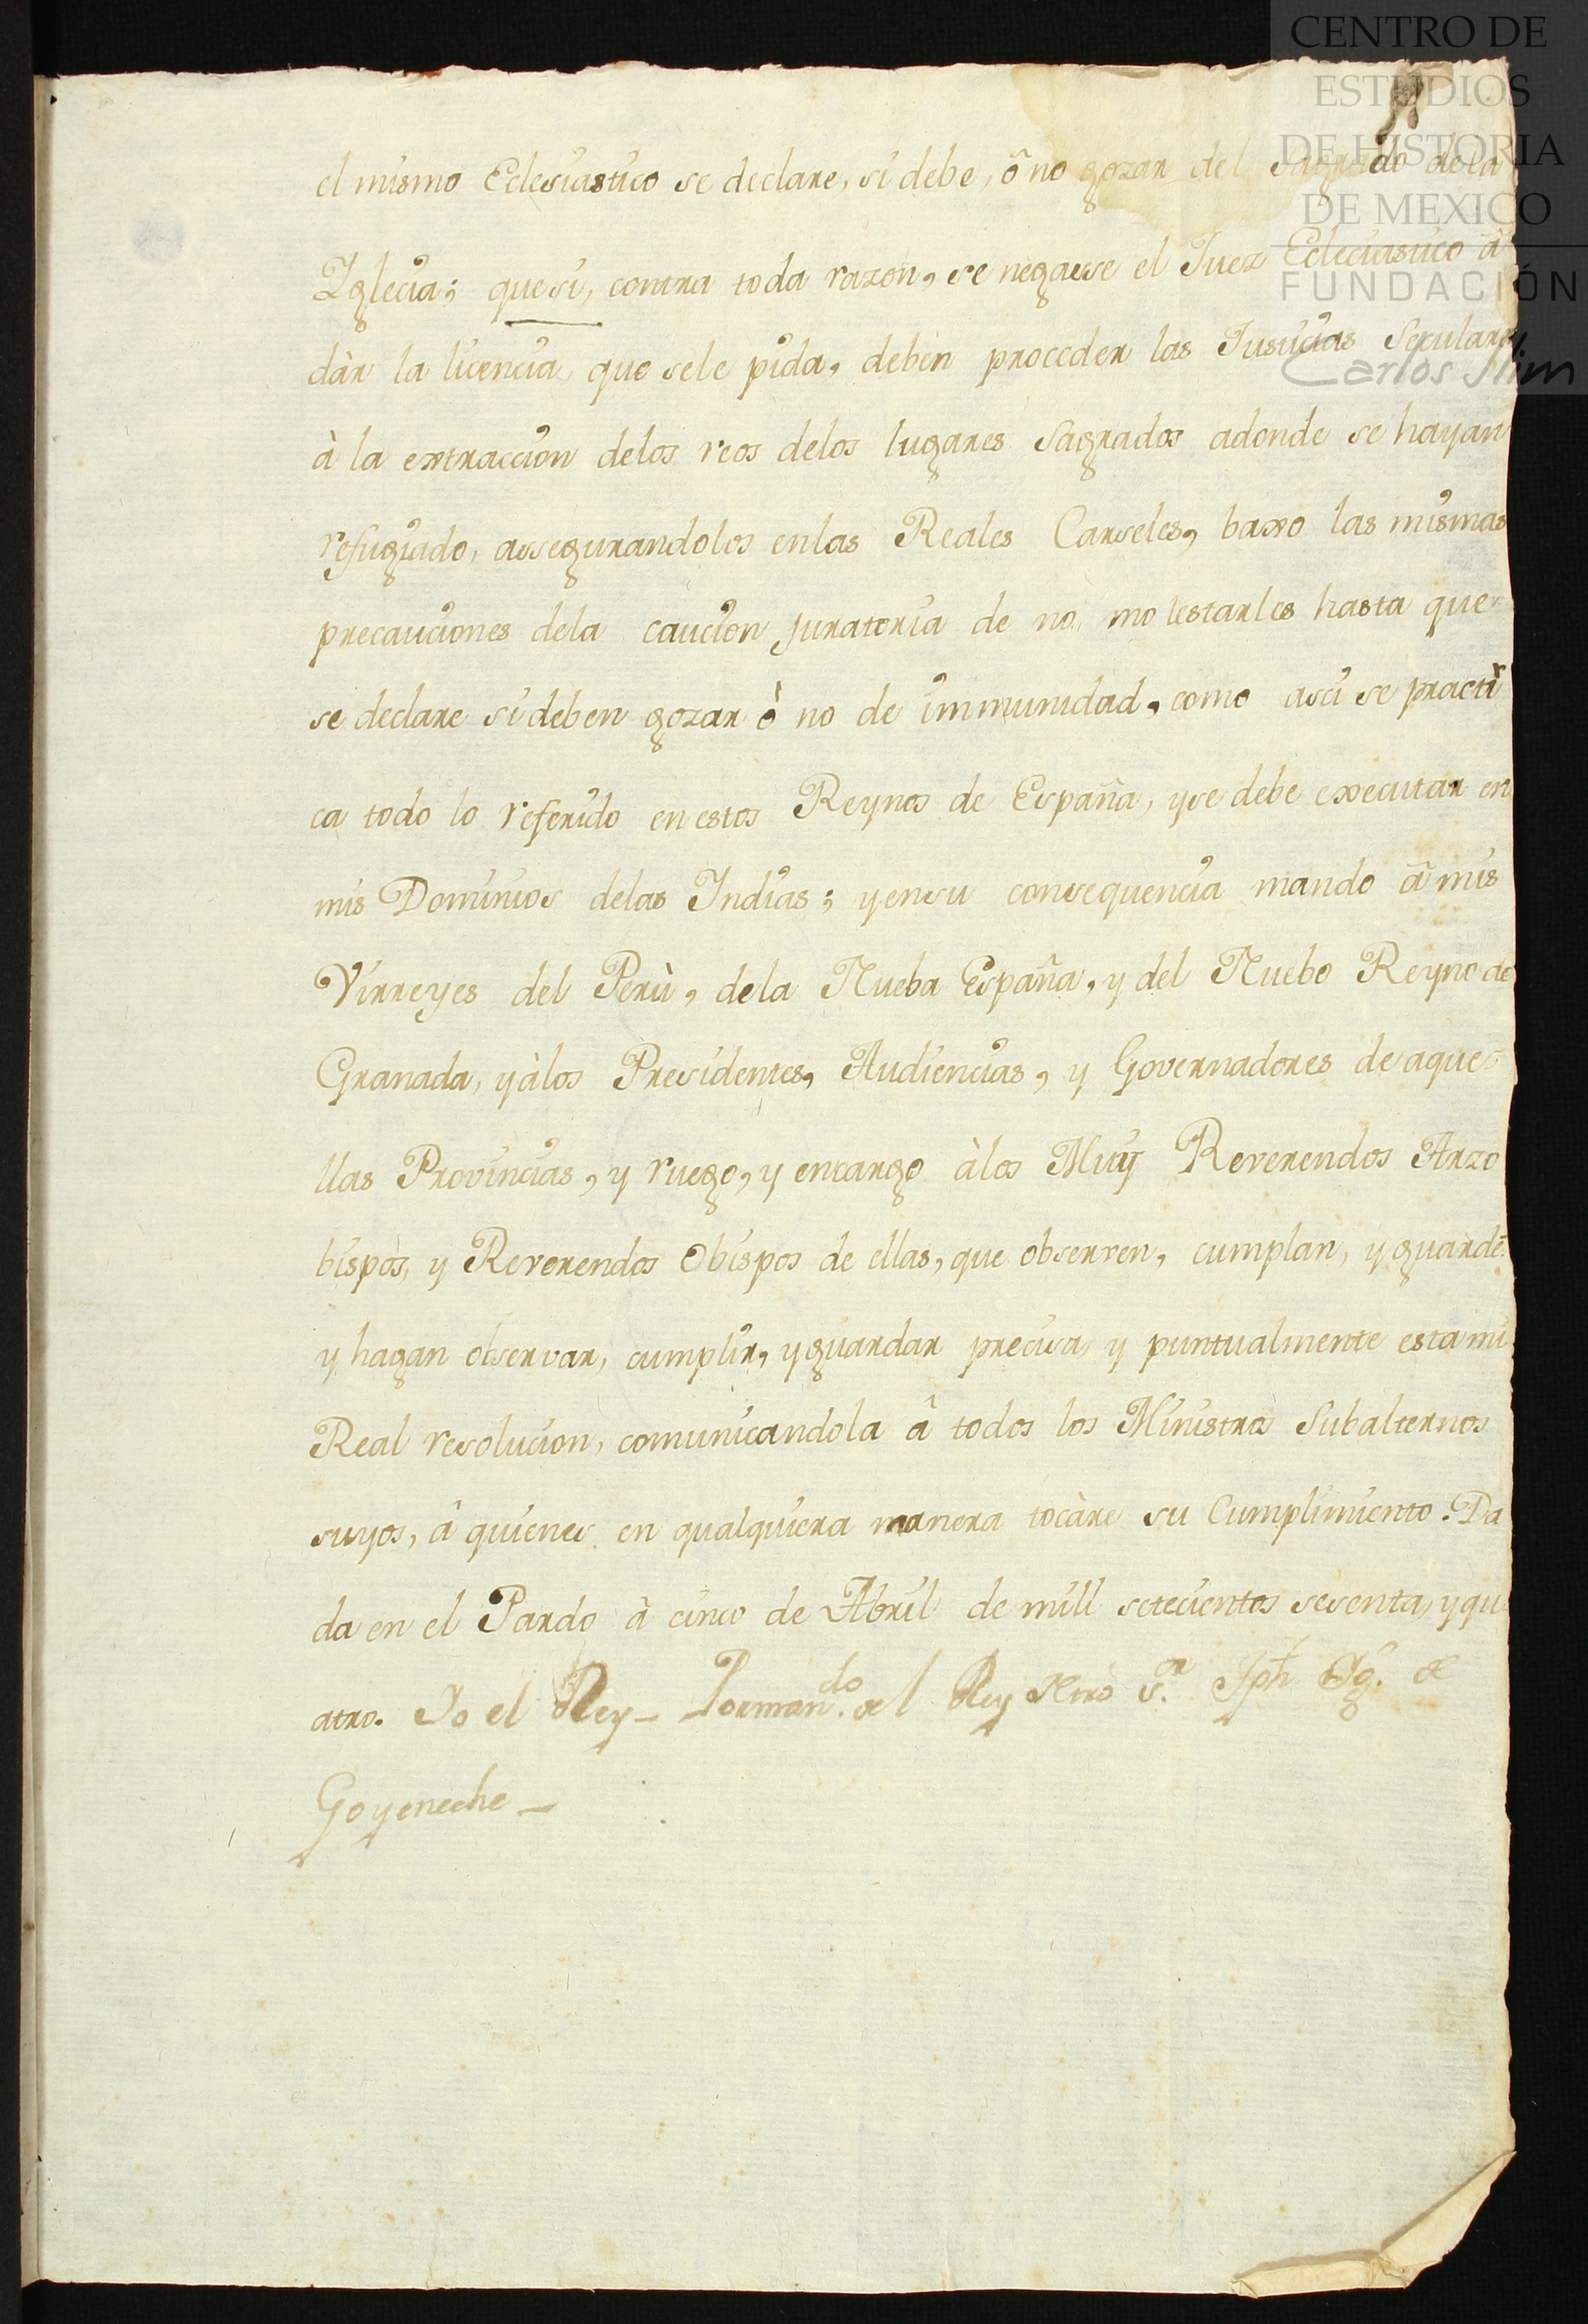 CENTRO DE
ESTUDIOS
DE HISTORIA
DE MEXICO
FUNDACIÓN
Carlos Slim
el mismo Eclesiastico se declare, si debe, ô no gozar del Sagrado dela
Yglecia; que si, contra toda razon, se negasse el Juez Eclesiastico â
dàr la licencia, que sele pida, deben proceder las Justicias Seculares
à la extraccion delos reos delos lugares Sagrados adonde se hayan
refugiado, assegurandolos enlas Reales Carseles, baxo las mismas
precauciones dela caucion juratoria de no molestarles hasta que
se declare si deben gozar ò no de immunidad, como assi se practi
ca todo lo referido en estos Reynos de España, y se debe executar en
mis Dominios delas Indias; y en su consequencia mando â mis
Virreyes del Perù, dela Nueba España, y del Nuebo Reyno de
Granada, y àlos Presidentes, Audiencias, y Governadores de aque
llas Provincias, y ruego, y encargo àlos Muy Reverendos Arzo
bispos, y Reverendos Obispos de ellas, que observen, cumplan, y guardẽ
y hagan observar, cumplir, y guardar precisa y puntualmente esta mi
Real resolucion, comunicandola â todos los Ministros Subalternos
suyos, â quienes en qualquiera manera tocàre su Cumplimiento. Da
da en el Pardo à cinco de Abril de mill setecientos sesenta, y qu
atro. Yo el Rey_ Por man.do del Rey Ntro S.r Jph Ig. de
Goyeneche_